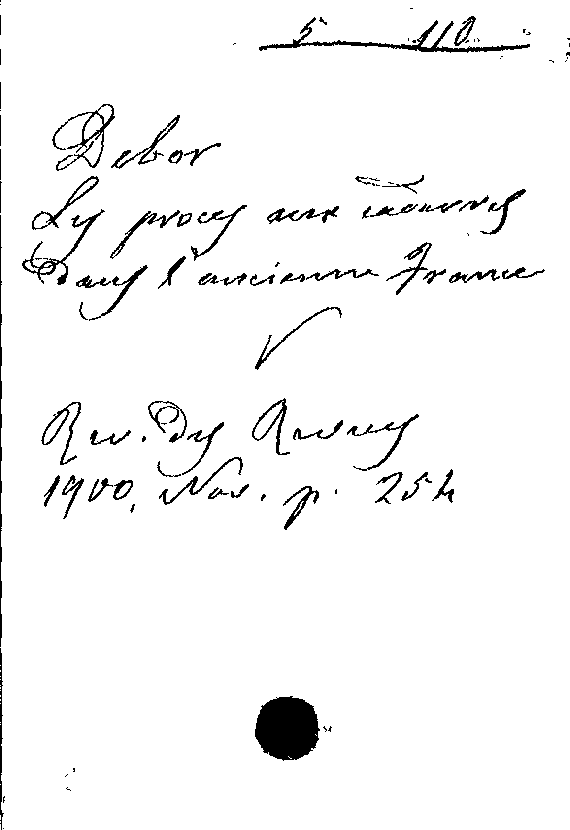 5 110
Debor
Les procès aux cadavres
dans l'ancienne France
Rev. des Revues
1900, Nov. p. 254